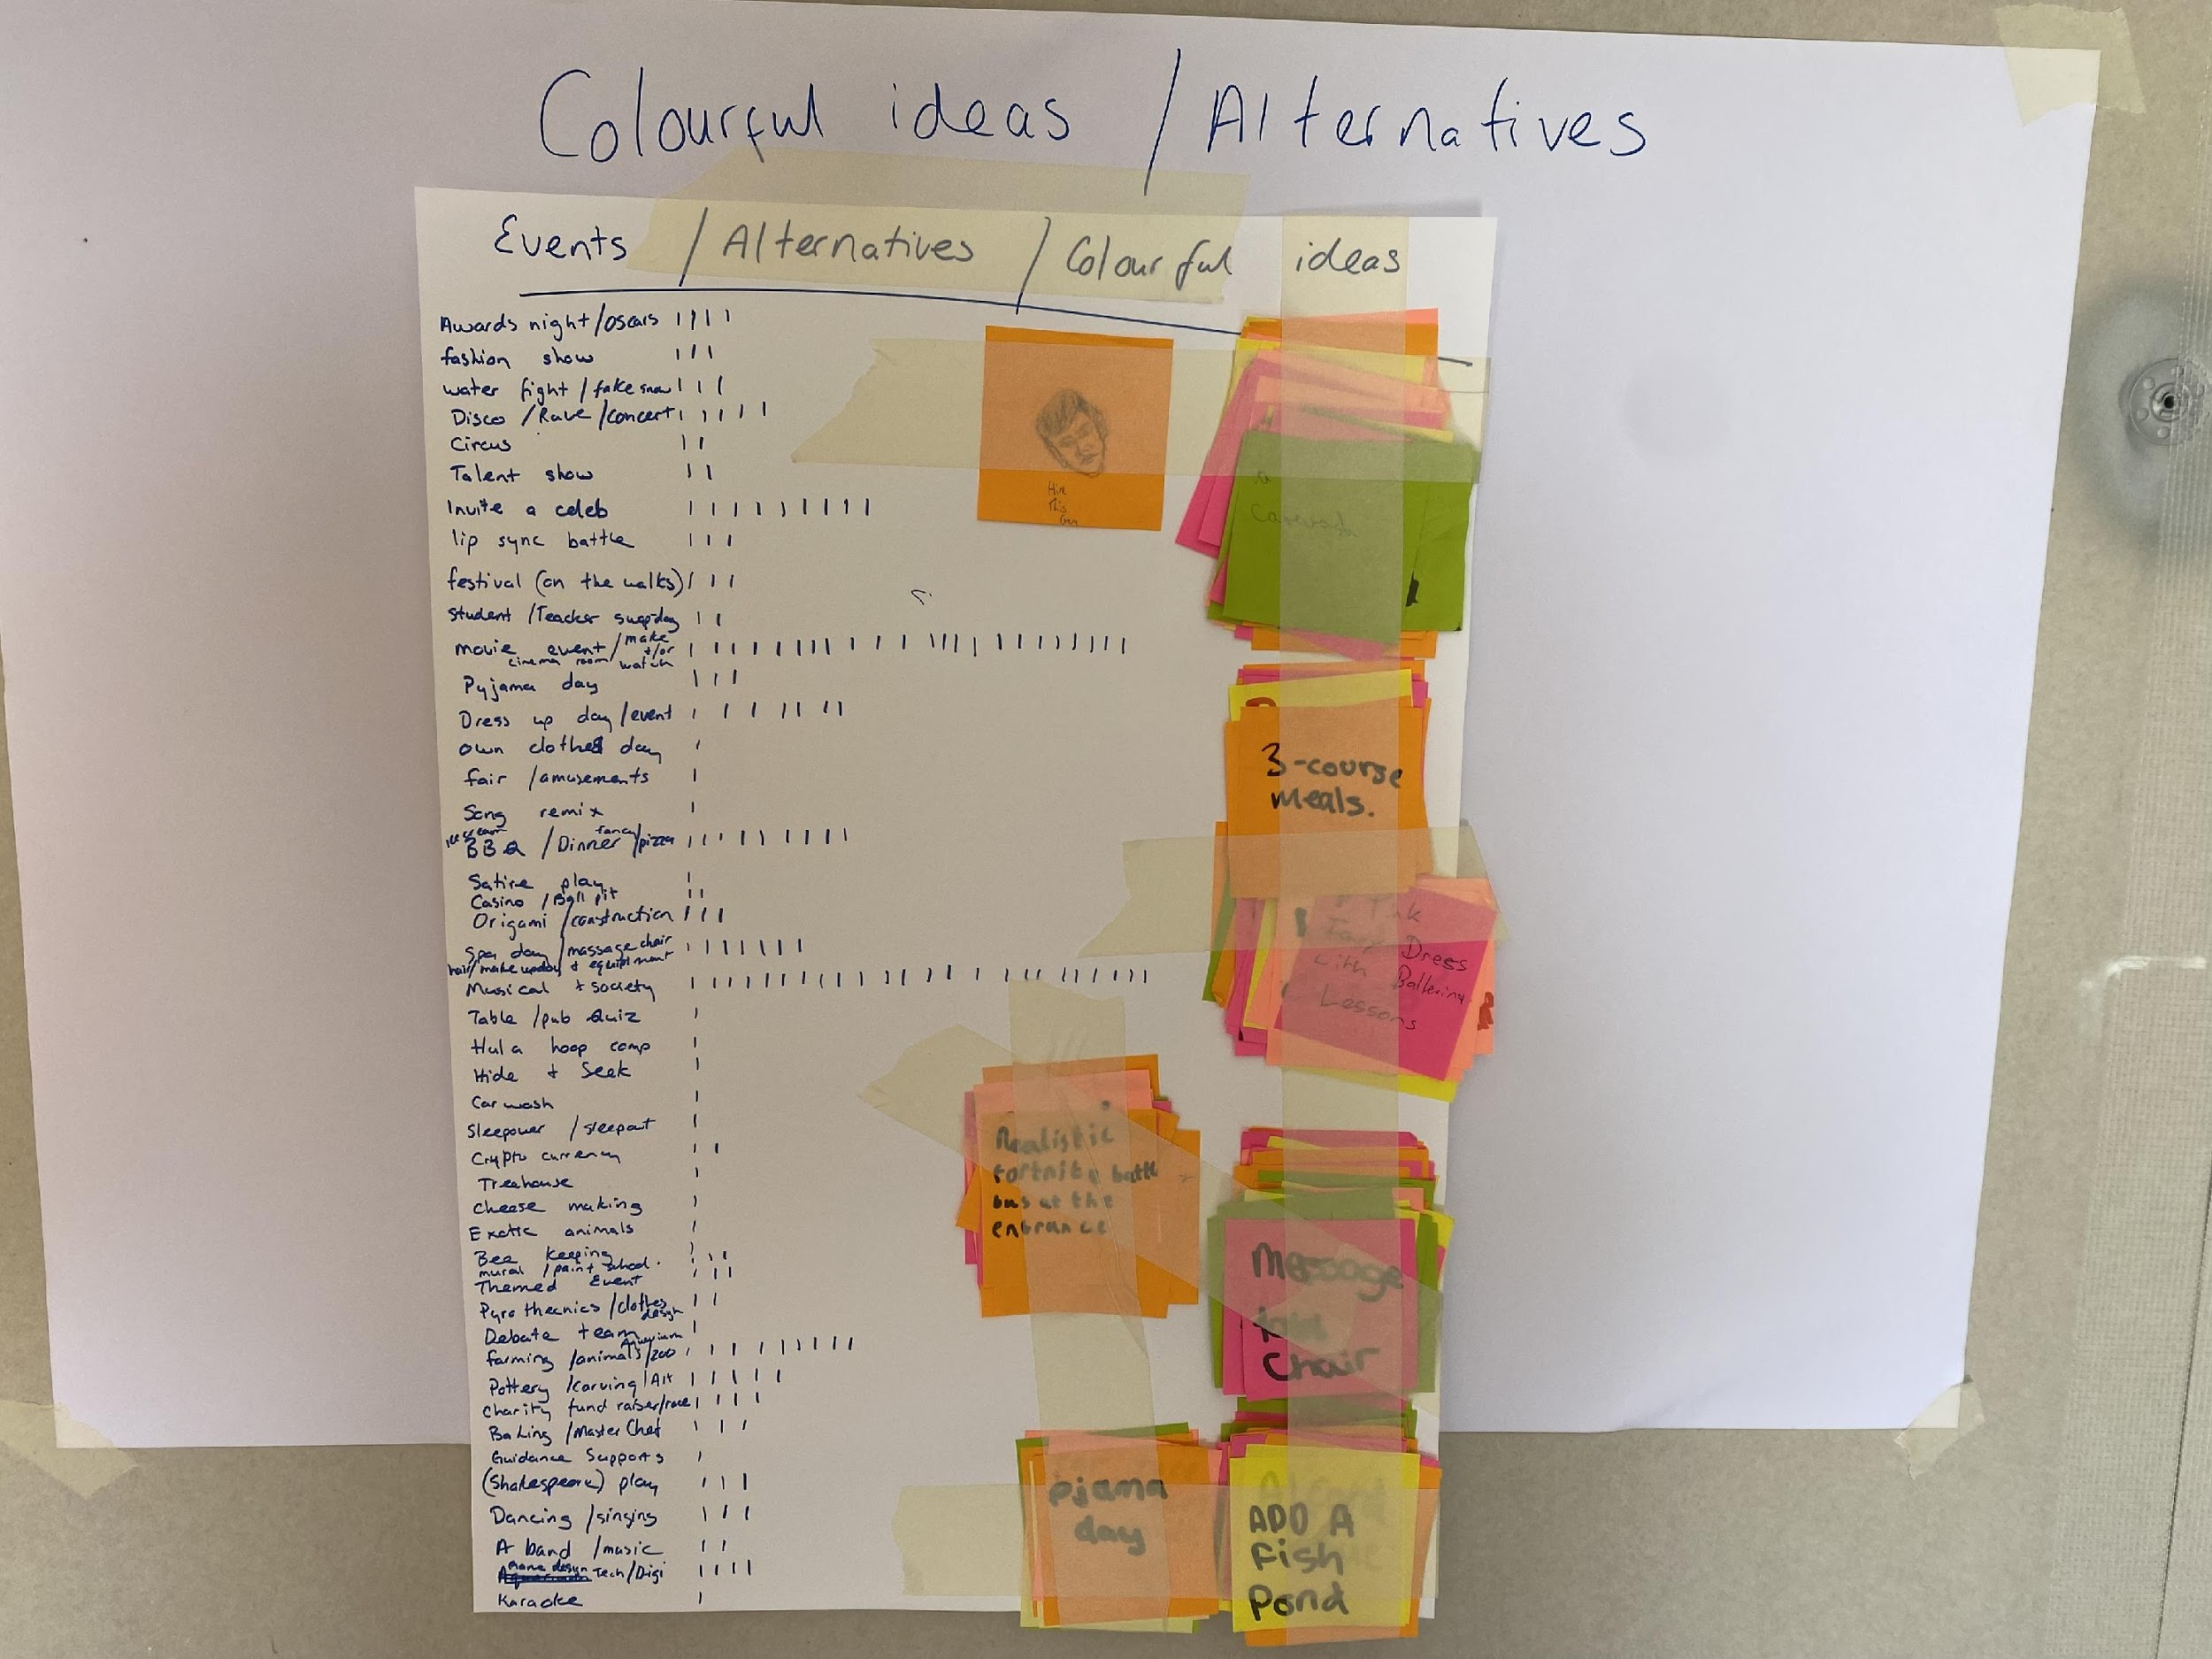 Colourful ideas / Alternatives
Events / Alternatives / Colourful ideas
Awards night/oscars
fashion show
water fight / fake snow
Disco / Rave / concert
Circus
Talent show
Invite a celeb
lip sync battle
festival (on the walks)
student / Teacher swap day
movie event / make +/or watch
cinema room
Pyjama day
Dress up day/event
own clothes day
fair /amusements
Song remix
ice cream
BBQ / Dinner fancy/pizza
Satire play
Casino / Ball pit
Origami /construction
Spa day / massage chair
hair/make up day + equipment
Musical + society
Table / pub Quiz
Hula hoop comp
Hide + Seek
Car wash
Sleepover / sleepout
Crypto currency
Treehouse
Cheese making
Exotic animals
Bee keeping
mural / paint school.
Themed Event
Pyrothecnics /clothes design
Debate team
farming /animals/zoo Aquarium
Pottery /carving/Art
Charity fund raiser/race
Baking /Master Chef
Guidance Supports
(Shakespeare) play
Dancing /singing
A band /music
Game design Tech/Digi
Karaoke
Hire
This
Guy
3-course
meals.
Dress
Ballerina
Lessons
Realistic
fortnite battle
bus at the
entrance
Message
Chair
pjama
day
ADD A
Fish
Pond